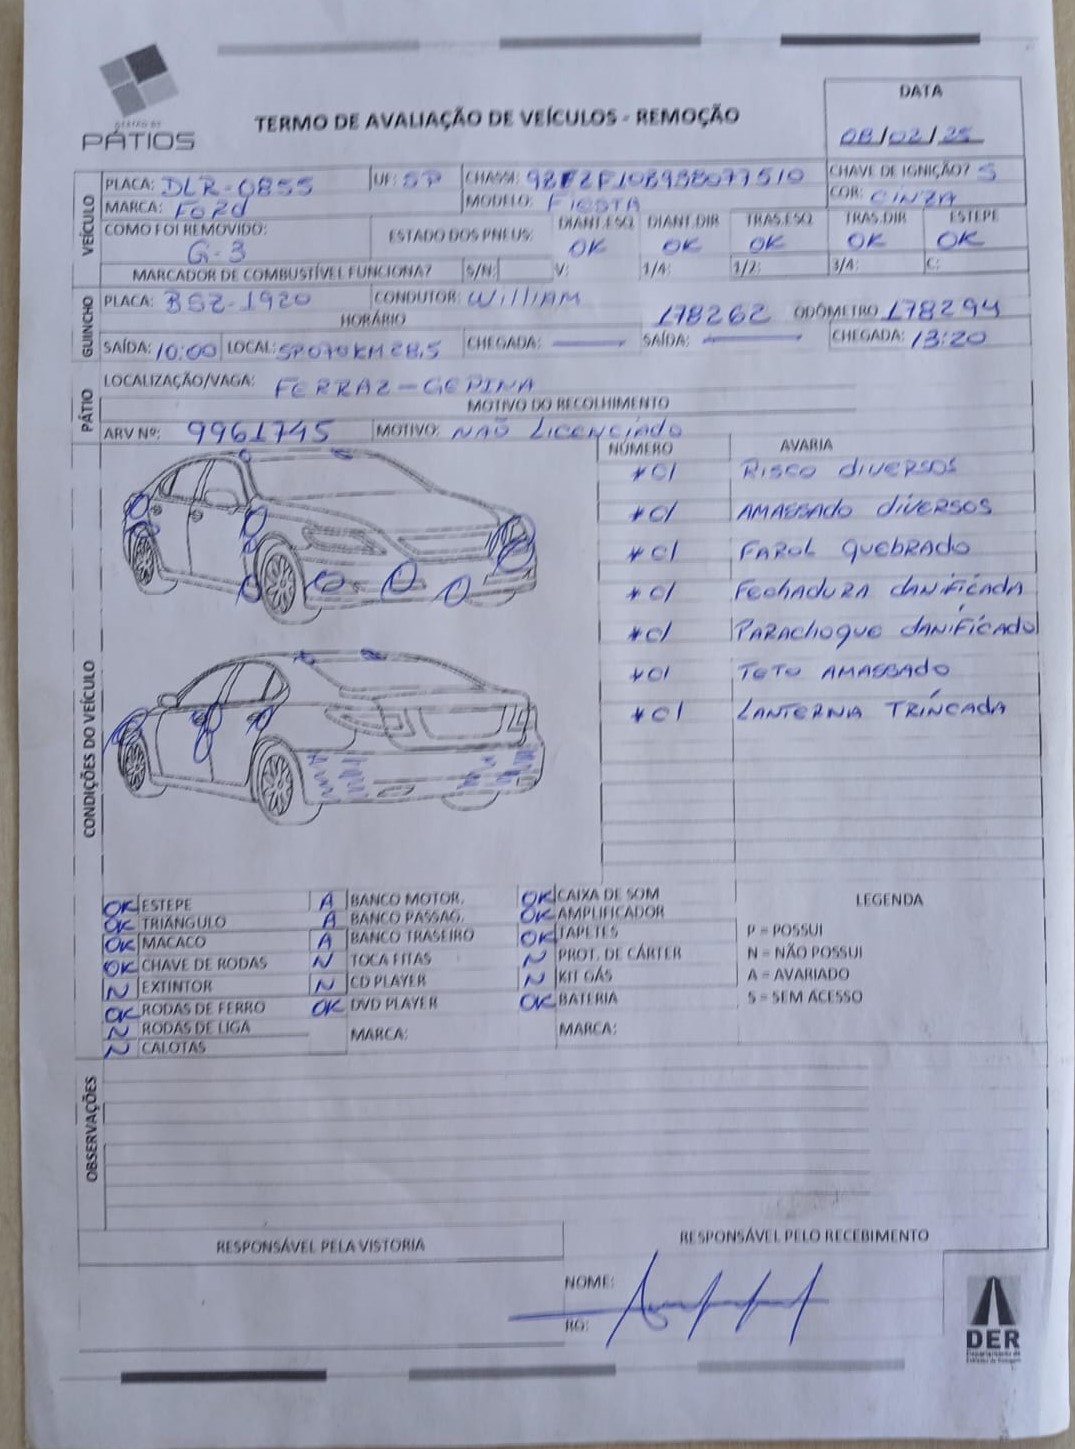 GESTÃO DE
PÁTIOS
TERMO DE AVALIAÇÃO DE VEÍCULOS - REMOÇÃO
DATA
08/02/25
VEÍCULO
PLACA: DLR-0855 UF: SP CHASSI: CHAVE DE IGNIÇÃO? S
MARCA: Ford MODELO: FIESTA COR: CINZA
COMO FOI REMOVIDO: G-3
ESTADO DOS PNEUS: DIANT.ESQ OK DIANT.DIR OK TRAS.ESQ OK TRAS.DIR OK ESTEPE OK
MARCADOR DE COMBUSTÍVEL FUNCIONA? S/N: V: 1/4: 1/2: 3/4: C:
GUINCHO
PLACA: BSZ-1920 CONDUTOR: William
HORÁRIO 178262 ODÔMETRO 178294
SAÍDA: 10:00 LOCAL: SP070 KM 28,5 CHEGADA: SAÍDA: CHEGADA: 13:20
PÁTIO
LOCALIZAÇÃO/VAGA: FERRAZ-GEPINA
MOTIVO DO RECOLHIMENTO
ARV Nº: 9961745 MOTIVO: NÃO LICENCIADO
CONDIÇÕES DO VEÍCULO
NÚMERO AVARIA
*C/ RISCO diVERSOS
*C/ AMASSADO diVERSOS
*C/ FAROL QUEBRADO
*C/ FECHADURA DANIFICADA
*C/ PARAchoque DANIFICADO
*C/ TETO AMASSADO
*C/ LANTERNA TRINCADA
OK ESTEPE A BANCO MOTOR. OK CAIXA DE SOM
OK TRIÂNGULO A BANCO PASSAG. OK AMPLIFICADOR
OK MACACO A BANCO TRASEIRO OK TAPETES
OK CHAVE DE RODAS N TOCA FITAS N PROT. DE CÁRTER
N EXTINTOR N CD PLAYER N KIT GÁS
OK RODAS DE FERRO OK DVD PLAYER OK BATERIA
N RODAS DE LIGA MARCA: MARCA:
N CALOTAS
LEGENDA
P = POSSUI
N = NÃO POSSUI
A = AVARIADO
S = SEM ACESSO
OBSERVAÇÕES
RESPONSÁVEL PELA VISTORIA
RESPONSÁVEL PELO RECEBIMENTO
NOME:
RG:
DER
Departamento de
Estradas de Rodagem